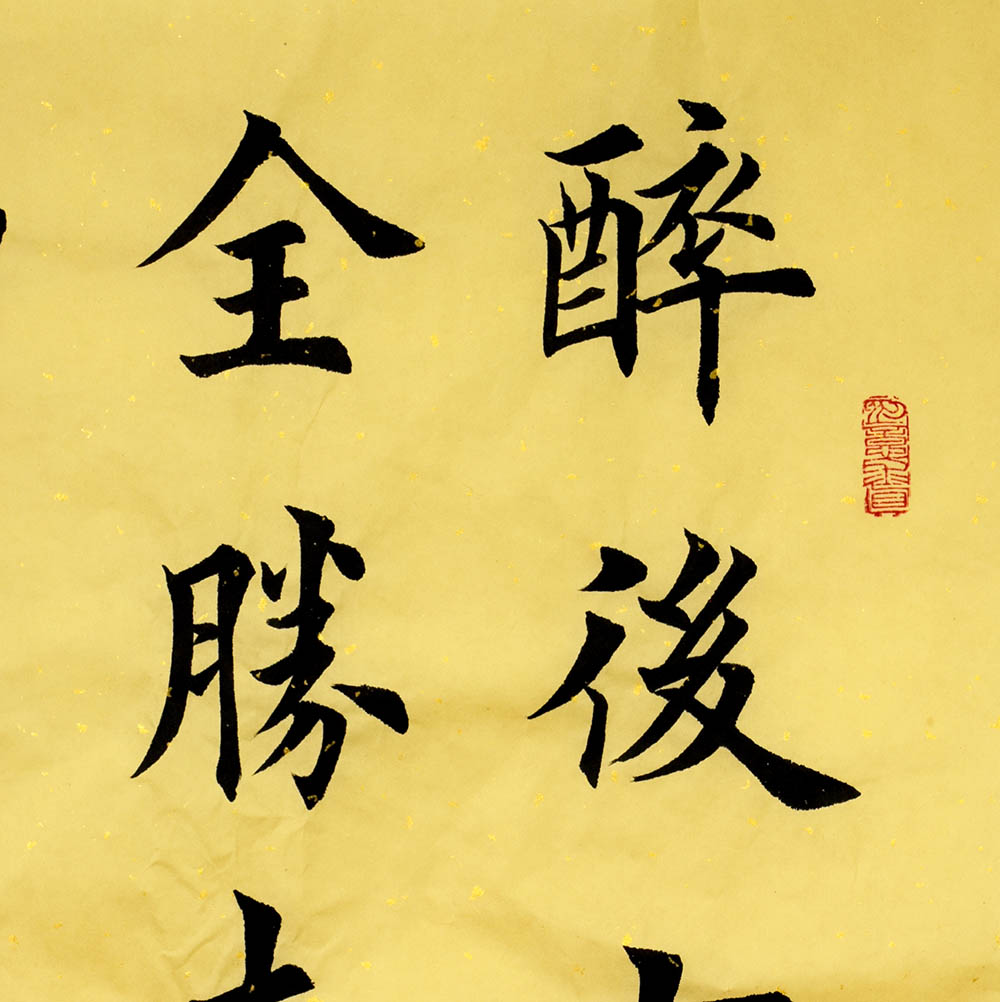 醉後
全勝